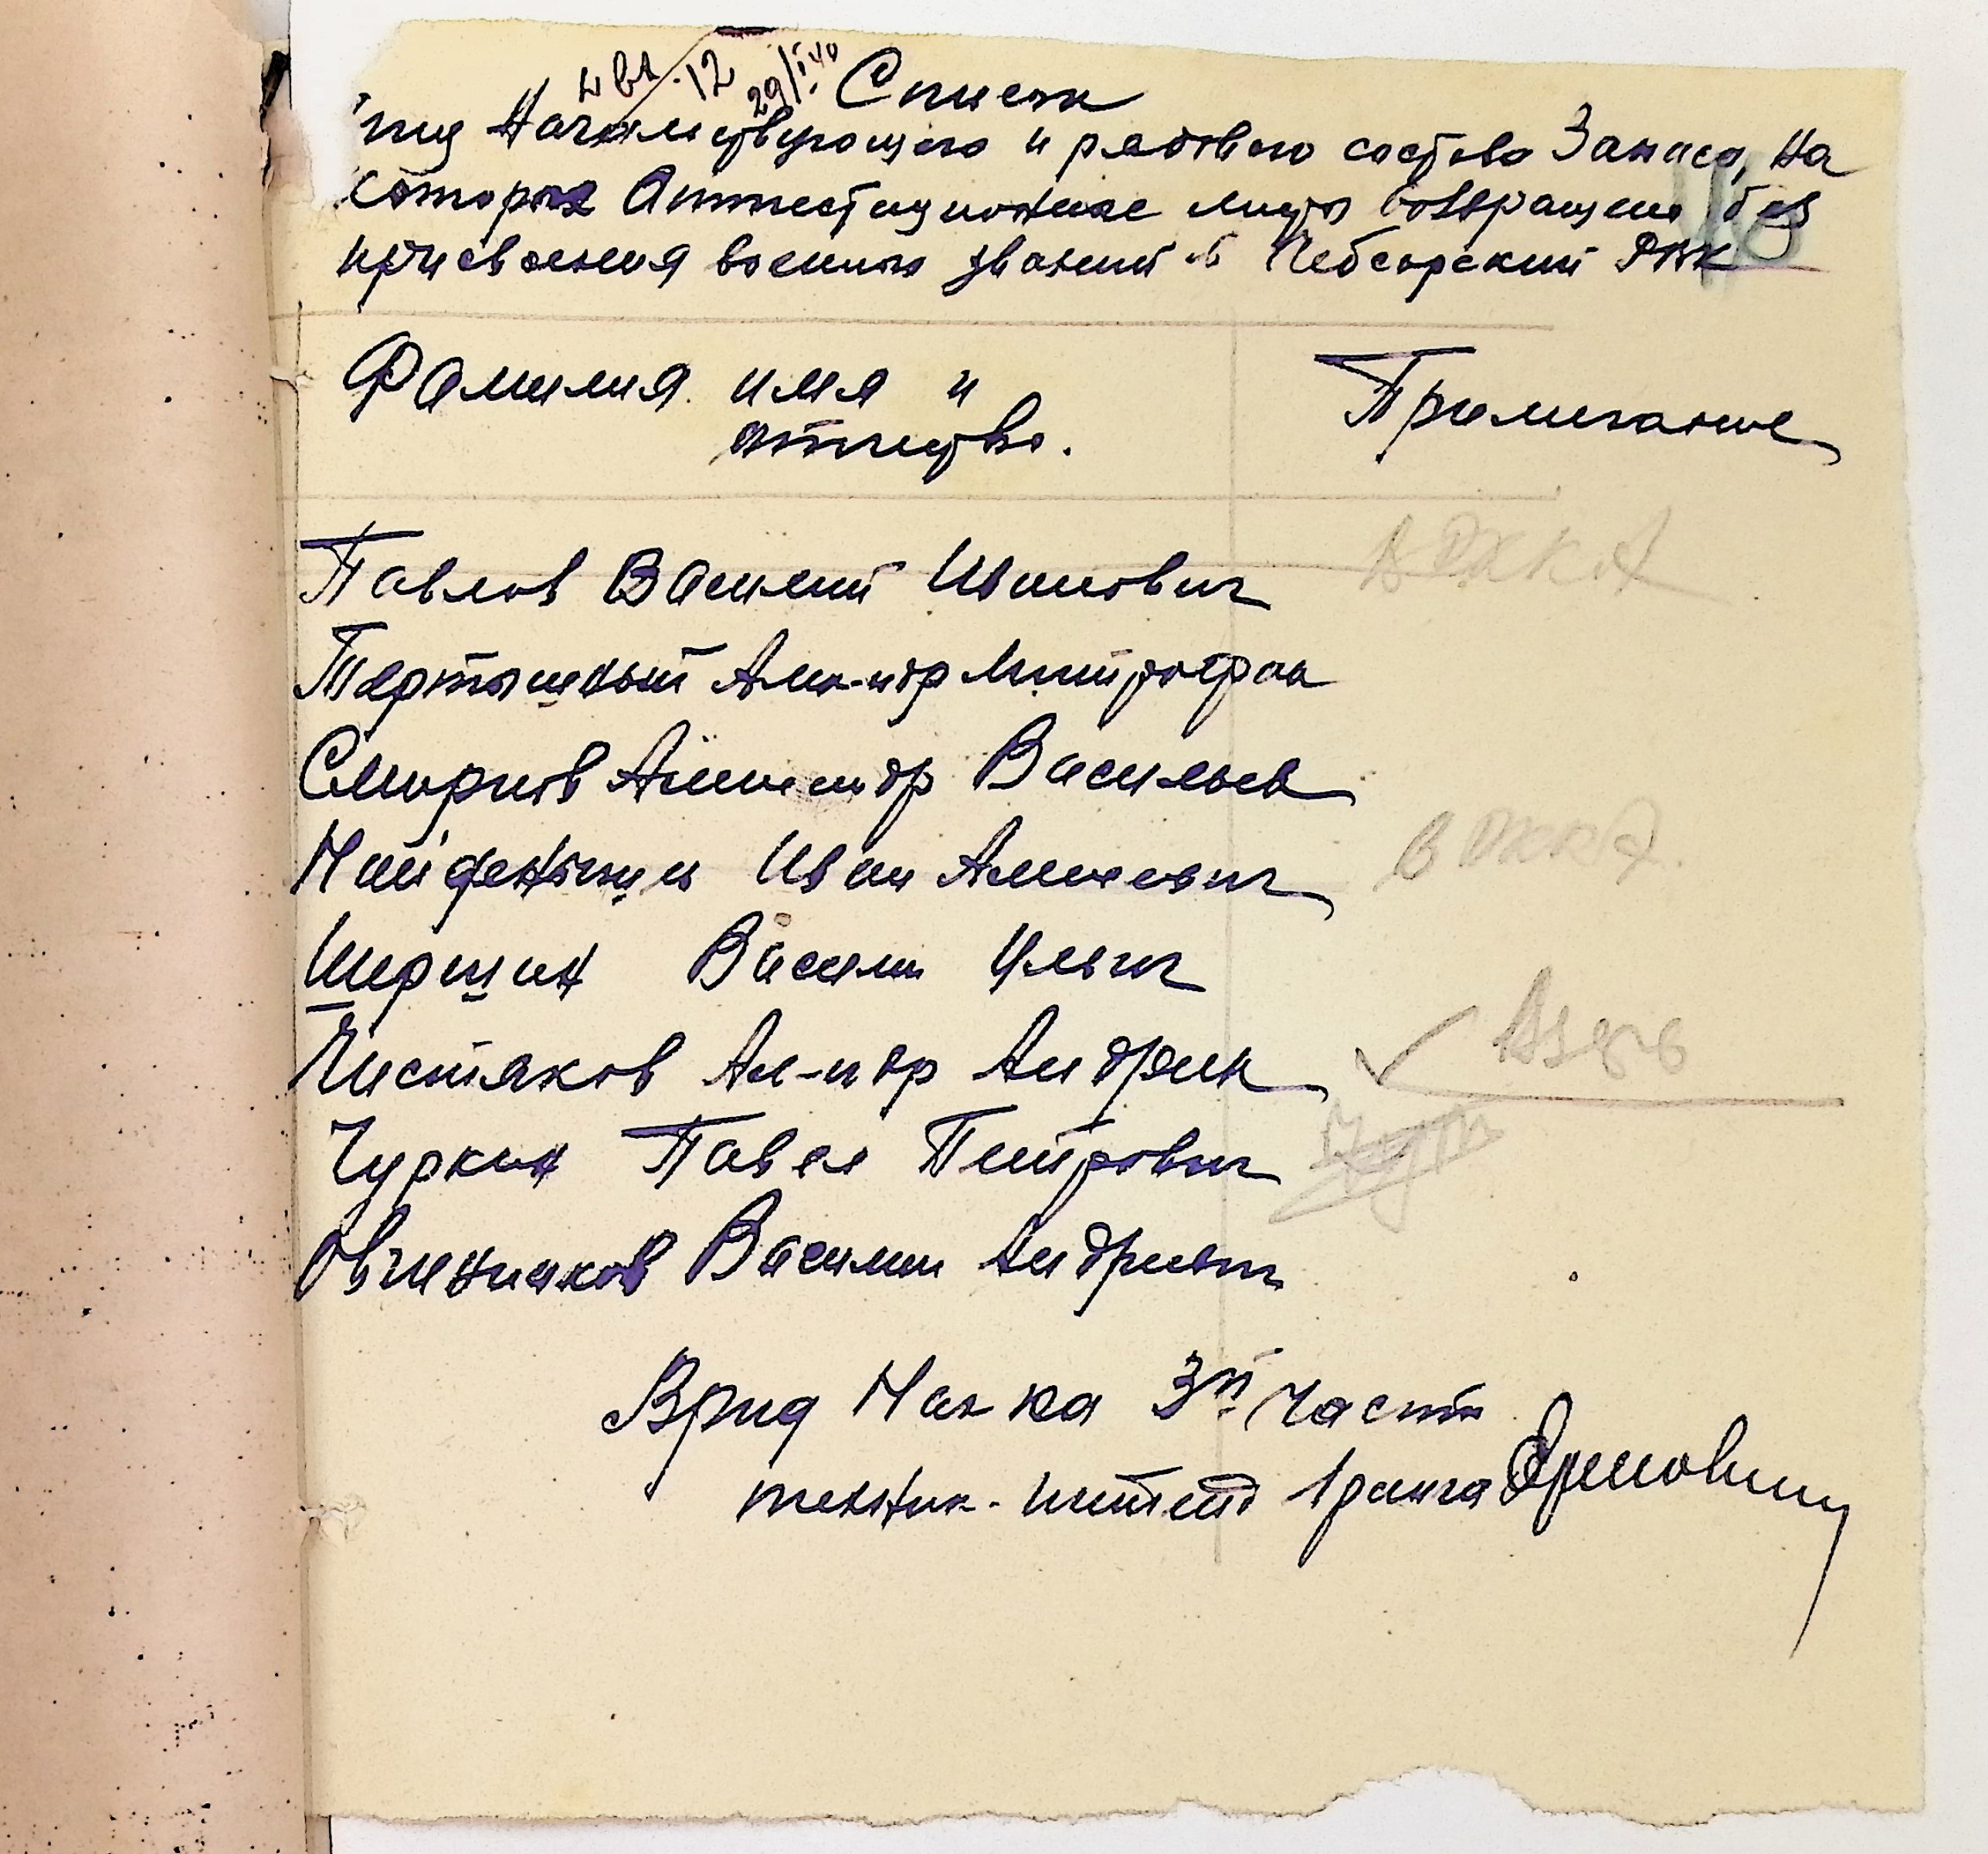 12 29/I 40
Список
лиц Начальствующего и рядового состава Запаса, на
которых Аттестационные листы возвращены без
присвоения военных званий в Чебсарский РВК
Фамилия имя и
отчество.
Примечание
Павлов Василий Иванович
в РККА
Тертышный Ал-ндр Митрофан
Смирнов Александр Васильев
Найденышев Иван Алексеевич
в РККА
Ширшин Василий Ильич
Чистяков Ал-ндр Андреев
Чуркин Павел Петрович
Овчинников Василий Андреевич
Врид Нач-ка 3й Части
техник-интенд 1 ранга